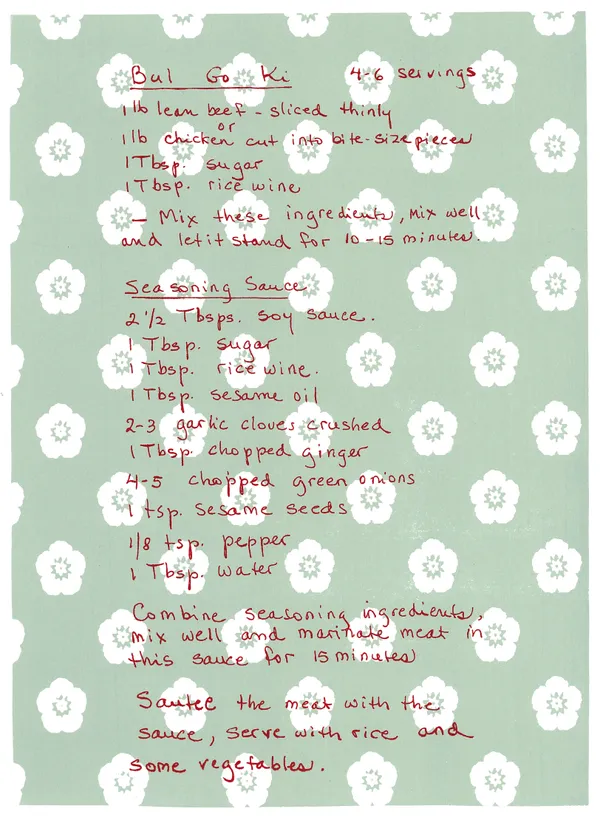 Bul Go Ki 4-6 servings
1 lb lean beef - sliced thinly
or
1 lb chicken cut into bite-size pieces
1 Tbsp. sugar
1 Tbsp. rice wine
- Mix these ingredients, mix well
and let it stand for 10-15 minutes.
Seasoning Sauce
2 1/2 Tbsps. soy sauce.
1 Tbsp. sugar
1 Tbsp. rice wine.
1 Tbsp. sesame oil
2-3 garlic cloves crushed
1 Tbsp. chopped ginger
4-5 chopped green onions
1 tsp. sesame seeds
1/8 tsp. pepper
1 Tbsp. water
Combine seasoning ingredients,
mix well and marinate meat in
this sauce for 15 minutes
Sautee the meat with the
sauce, serve with rice and
some vegetables.